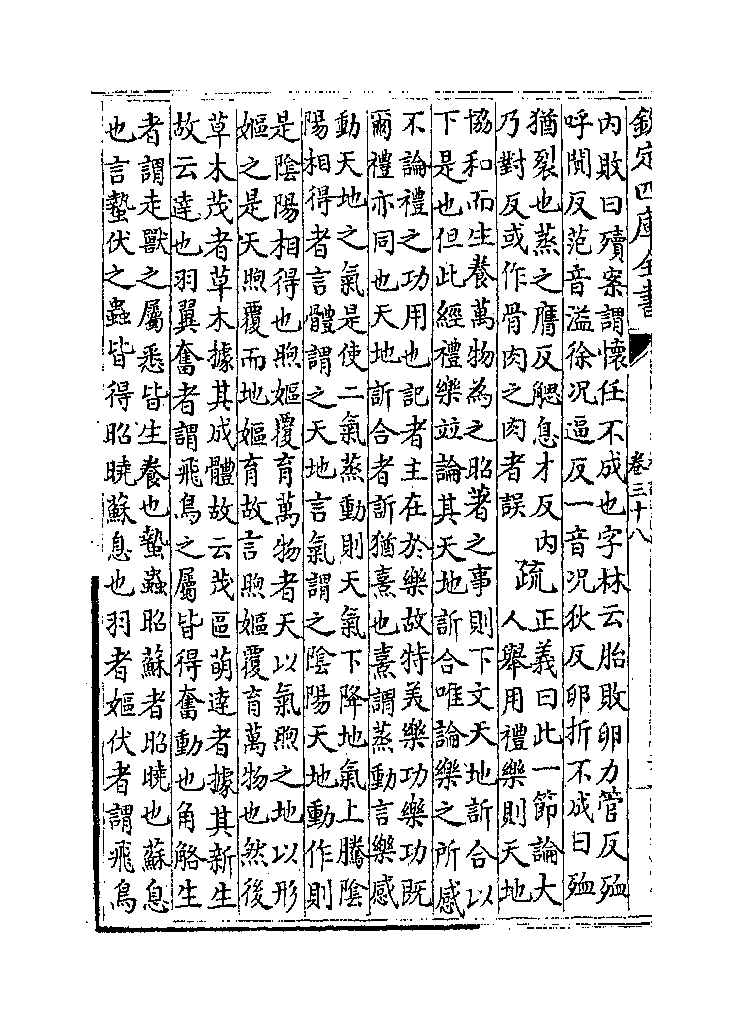 欽定四庫全書
卷三十八
内敗曰殰案謂懷任不成也字林云胎敗卵力管反殈
呼鬩反范音溢徐况逼反一音况狄反卵折不成曰殈
猶裂也蒸之膺反䚡息才反内
乃對反或作骨肉之肉者誤
疏
正義曰此一節論大
人舉用禮樂則天地
協和而生養萬物為之昭著之事則下文天地訢合以
下是也但此經禮樂竝論其天地訢合唯論樂之所感
不論禮之功用也記者主在於樂故特美樂功樂功既
爾禮亦同也天地訢合者訢猶熹也熹謂蒸動言樂感
動天地之氣是使二氣蒸動則天氣下降地氣上騰陰
陽相得者言體謂之天地言氣謂之陰陽天地動作則
是陰陽相得也煦嫗覆育萬物者天以氣煦之地以形
嫗之是天煦覆而地嫗育故言煦嫗覆育萬物也然後
草木茂者草木據其成體故云茂區萌達者據其新生
故云達也羽翼奮者謂飛鳥之屬皆得奮動也角觡生
者謂走獸之屬悉皆生養也蟄蟲昭蘇者昭曉也蘇息
也言蟄伏之蟲皆得昭曉蘇息也羽者嫗伏者謂飛鳥